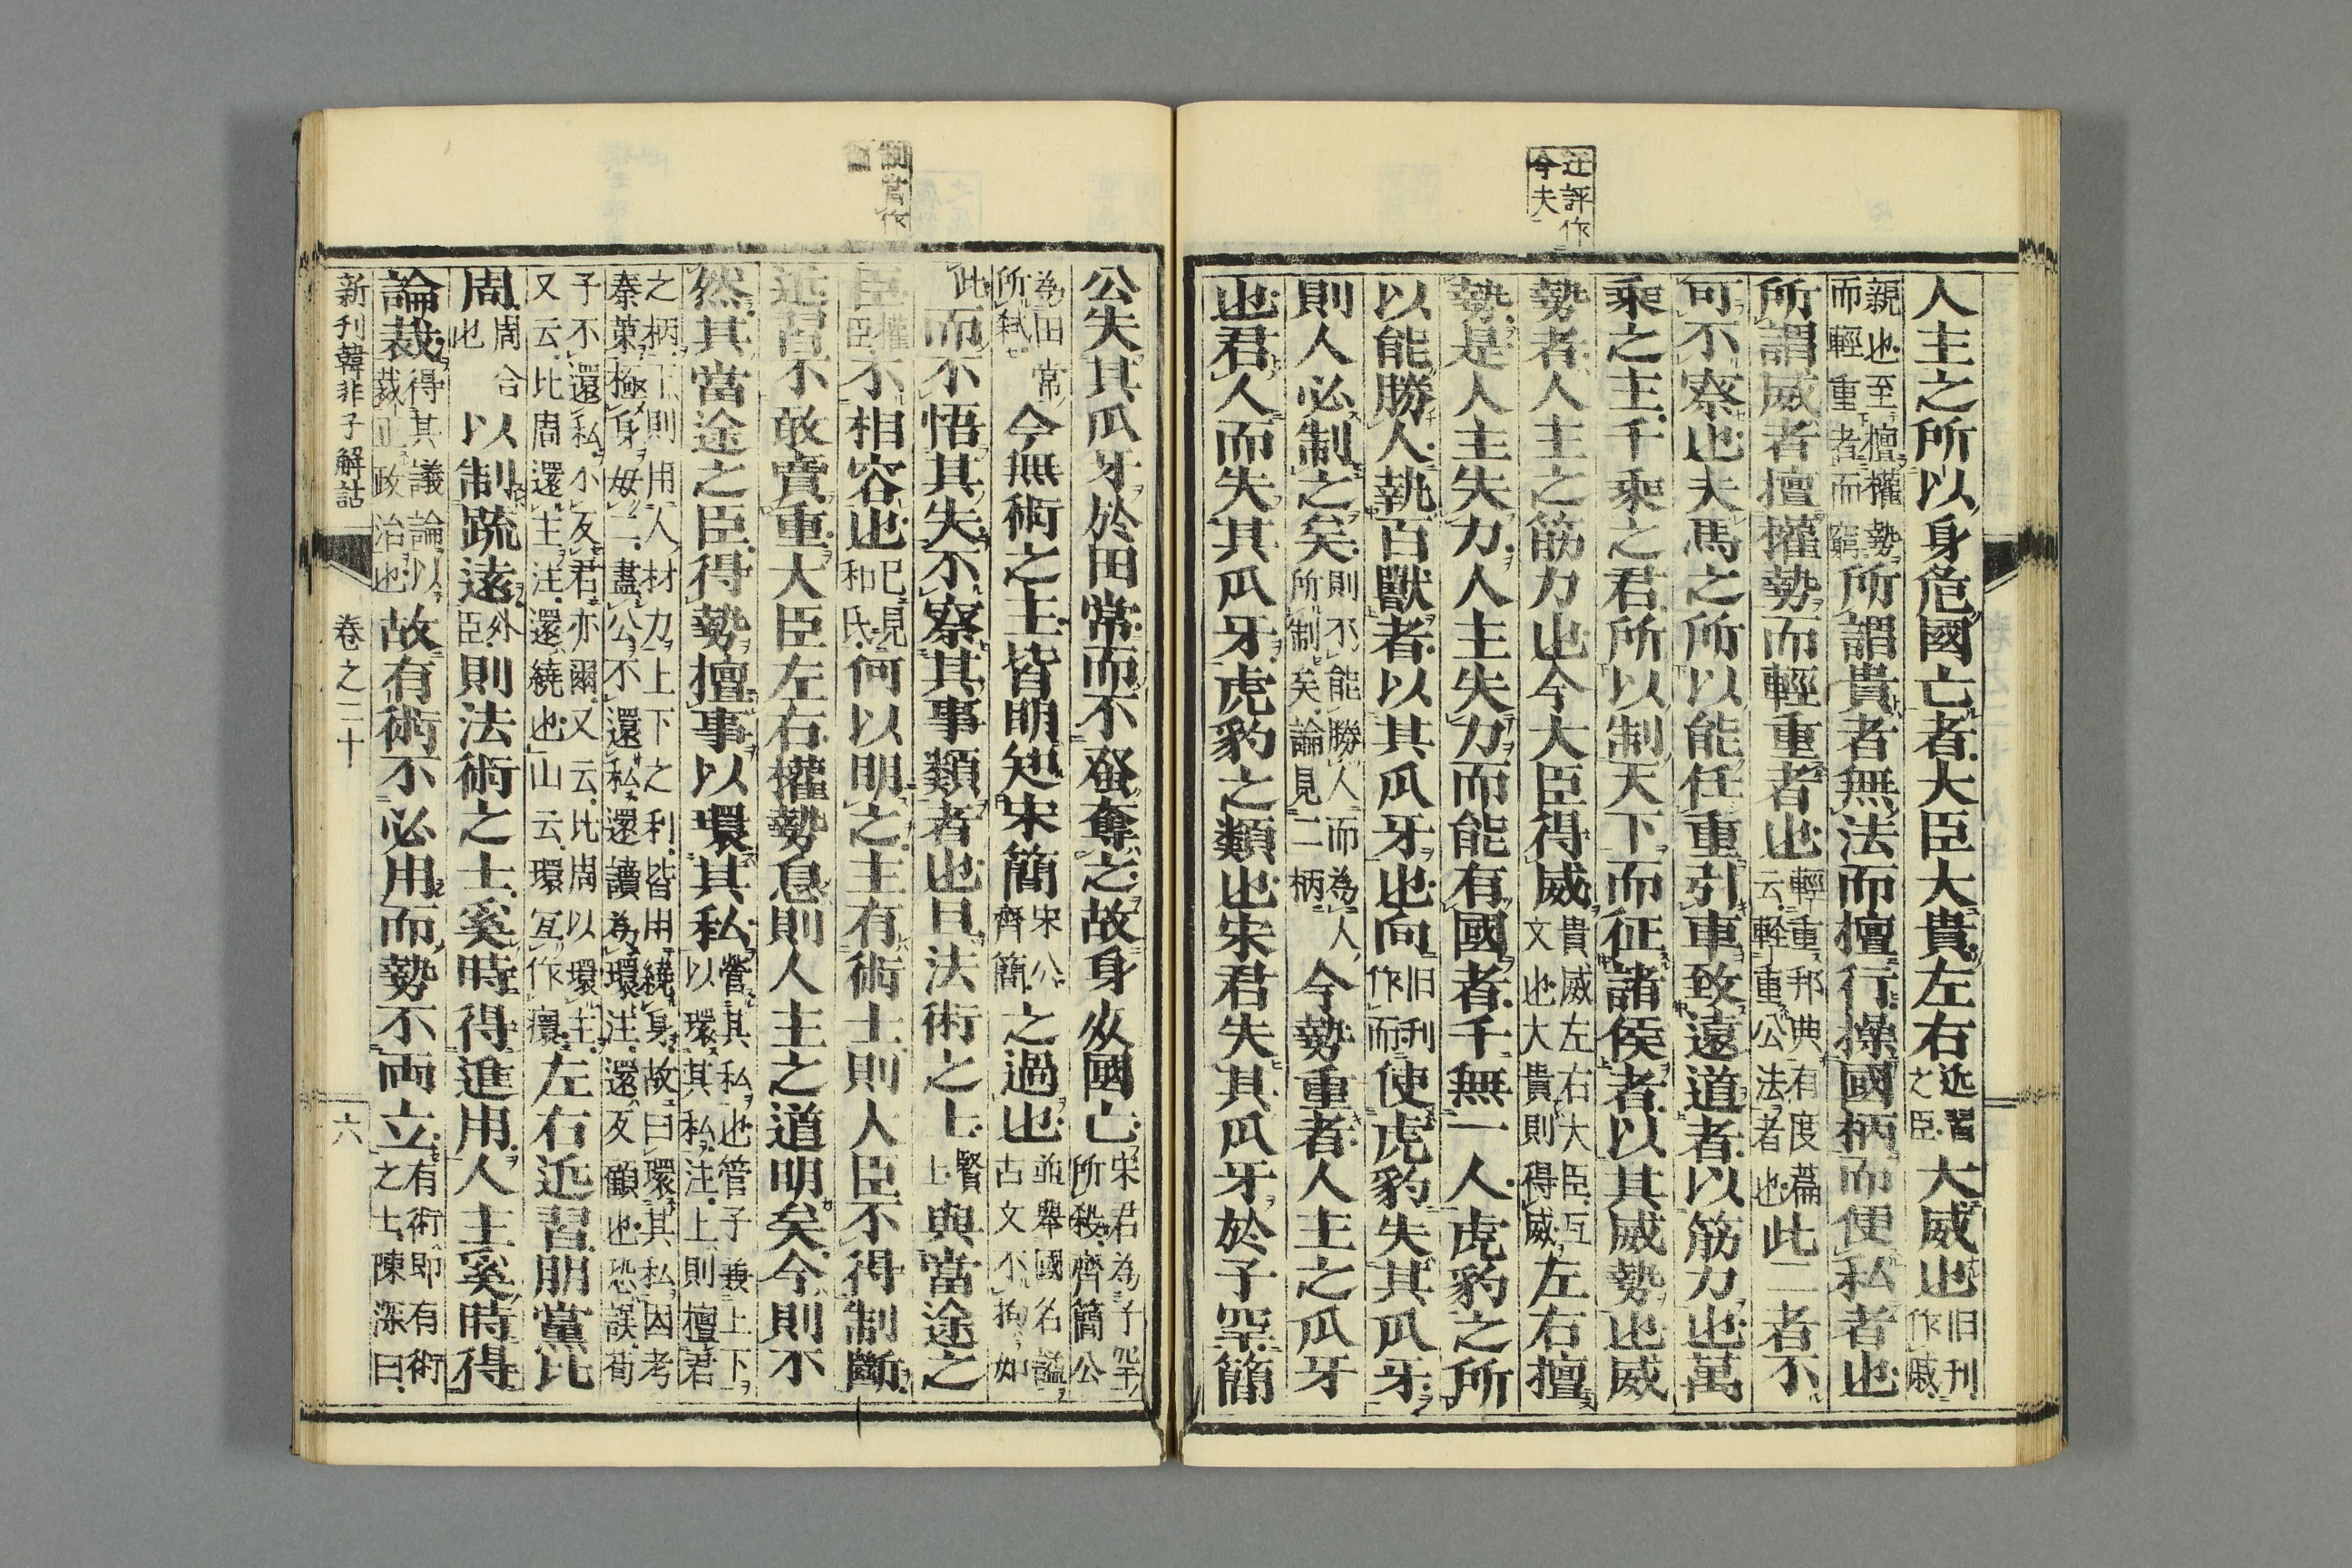 迂評作
今夫
人主之所以身危國亡者大臣大貴左右近習之臣大威也旧刋作戚
親也至擅權勢而輕重者而窮所謂貴者無法而擅行操國柄而便私者也
所謂威者擅權勢而輕重者也輕重邦典有度篇云輕重公法者也此二者不
可不察也夫馬之所以能任重引車致遠道者以筋力也萬
乘之主千乘之君所以制天下而征諸侯者以其威勢也威
勢者人主之筋力也今大臣得威貴威左右大臣互文也大貴則得威左右擅
勢是人主失力人主失力而能有國者千無一人虎豹之所
以能勝人執百獸者以其爪牙也向旧刋作而使虎豹失其爪牙
則人必制之矣則不能勝人而為人所制矣論見二柄今勢重者人主之爪牙
也君人而失其爪牙虎豹之類也宋君失其爪牙於子罕簡
公失其爪牙於田常而不蚤奪之故身死國亡宋君為子罕所殺齊簡公
為田常所弒今無術之主皆明知宋簡宋公齊簡之過也並舉國名謚古文不拘如
此而不悟其失不察其事類者也且法術之士賢士與當途之
臣權臣不相容也已見和氏何以明之主有術士則人臣不得制斷
近習不敢賣重大臣左右權勢息則人主之道明矣今則不
然其當途之臣得勢擅事以環其私營其私也管子兼上下以環其私注上則擅君
之柄下則用人材力上下之利皆用繞身故曰環其私因考秦策極身毋二盡公不還私還讀為環注還反顧也恐誤荀
子不還私不反君亦爾又云比周以環主又云比周還主注還繞也山云環互作痕左右近習朋黨比
周周合也以制疏遠外臣則法術之士奚時得進用人主奚時得
論裁得其議論以裁正政治也故有術不必用而勢不兩立有術即有術之士陳深曰
新刊韓非子解詁
卷之二十
六